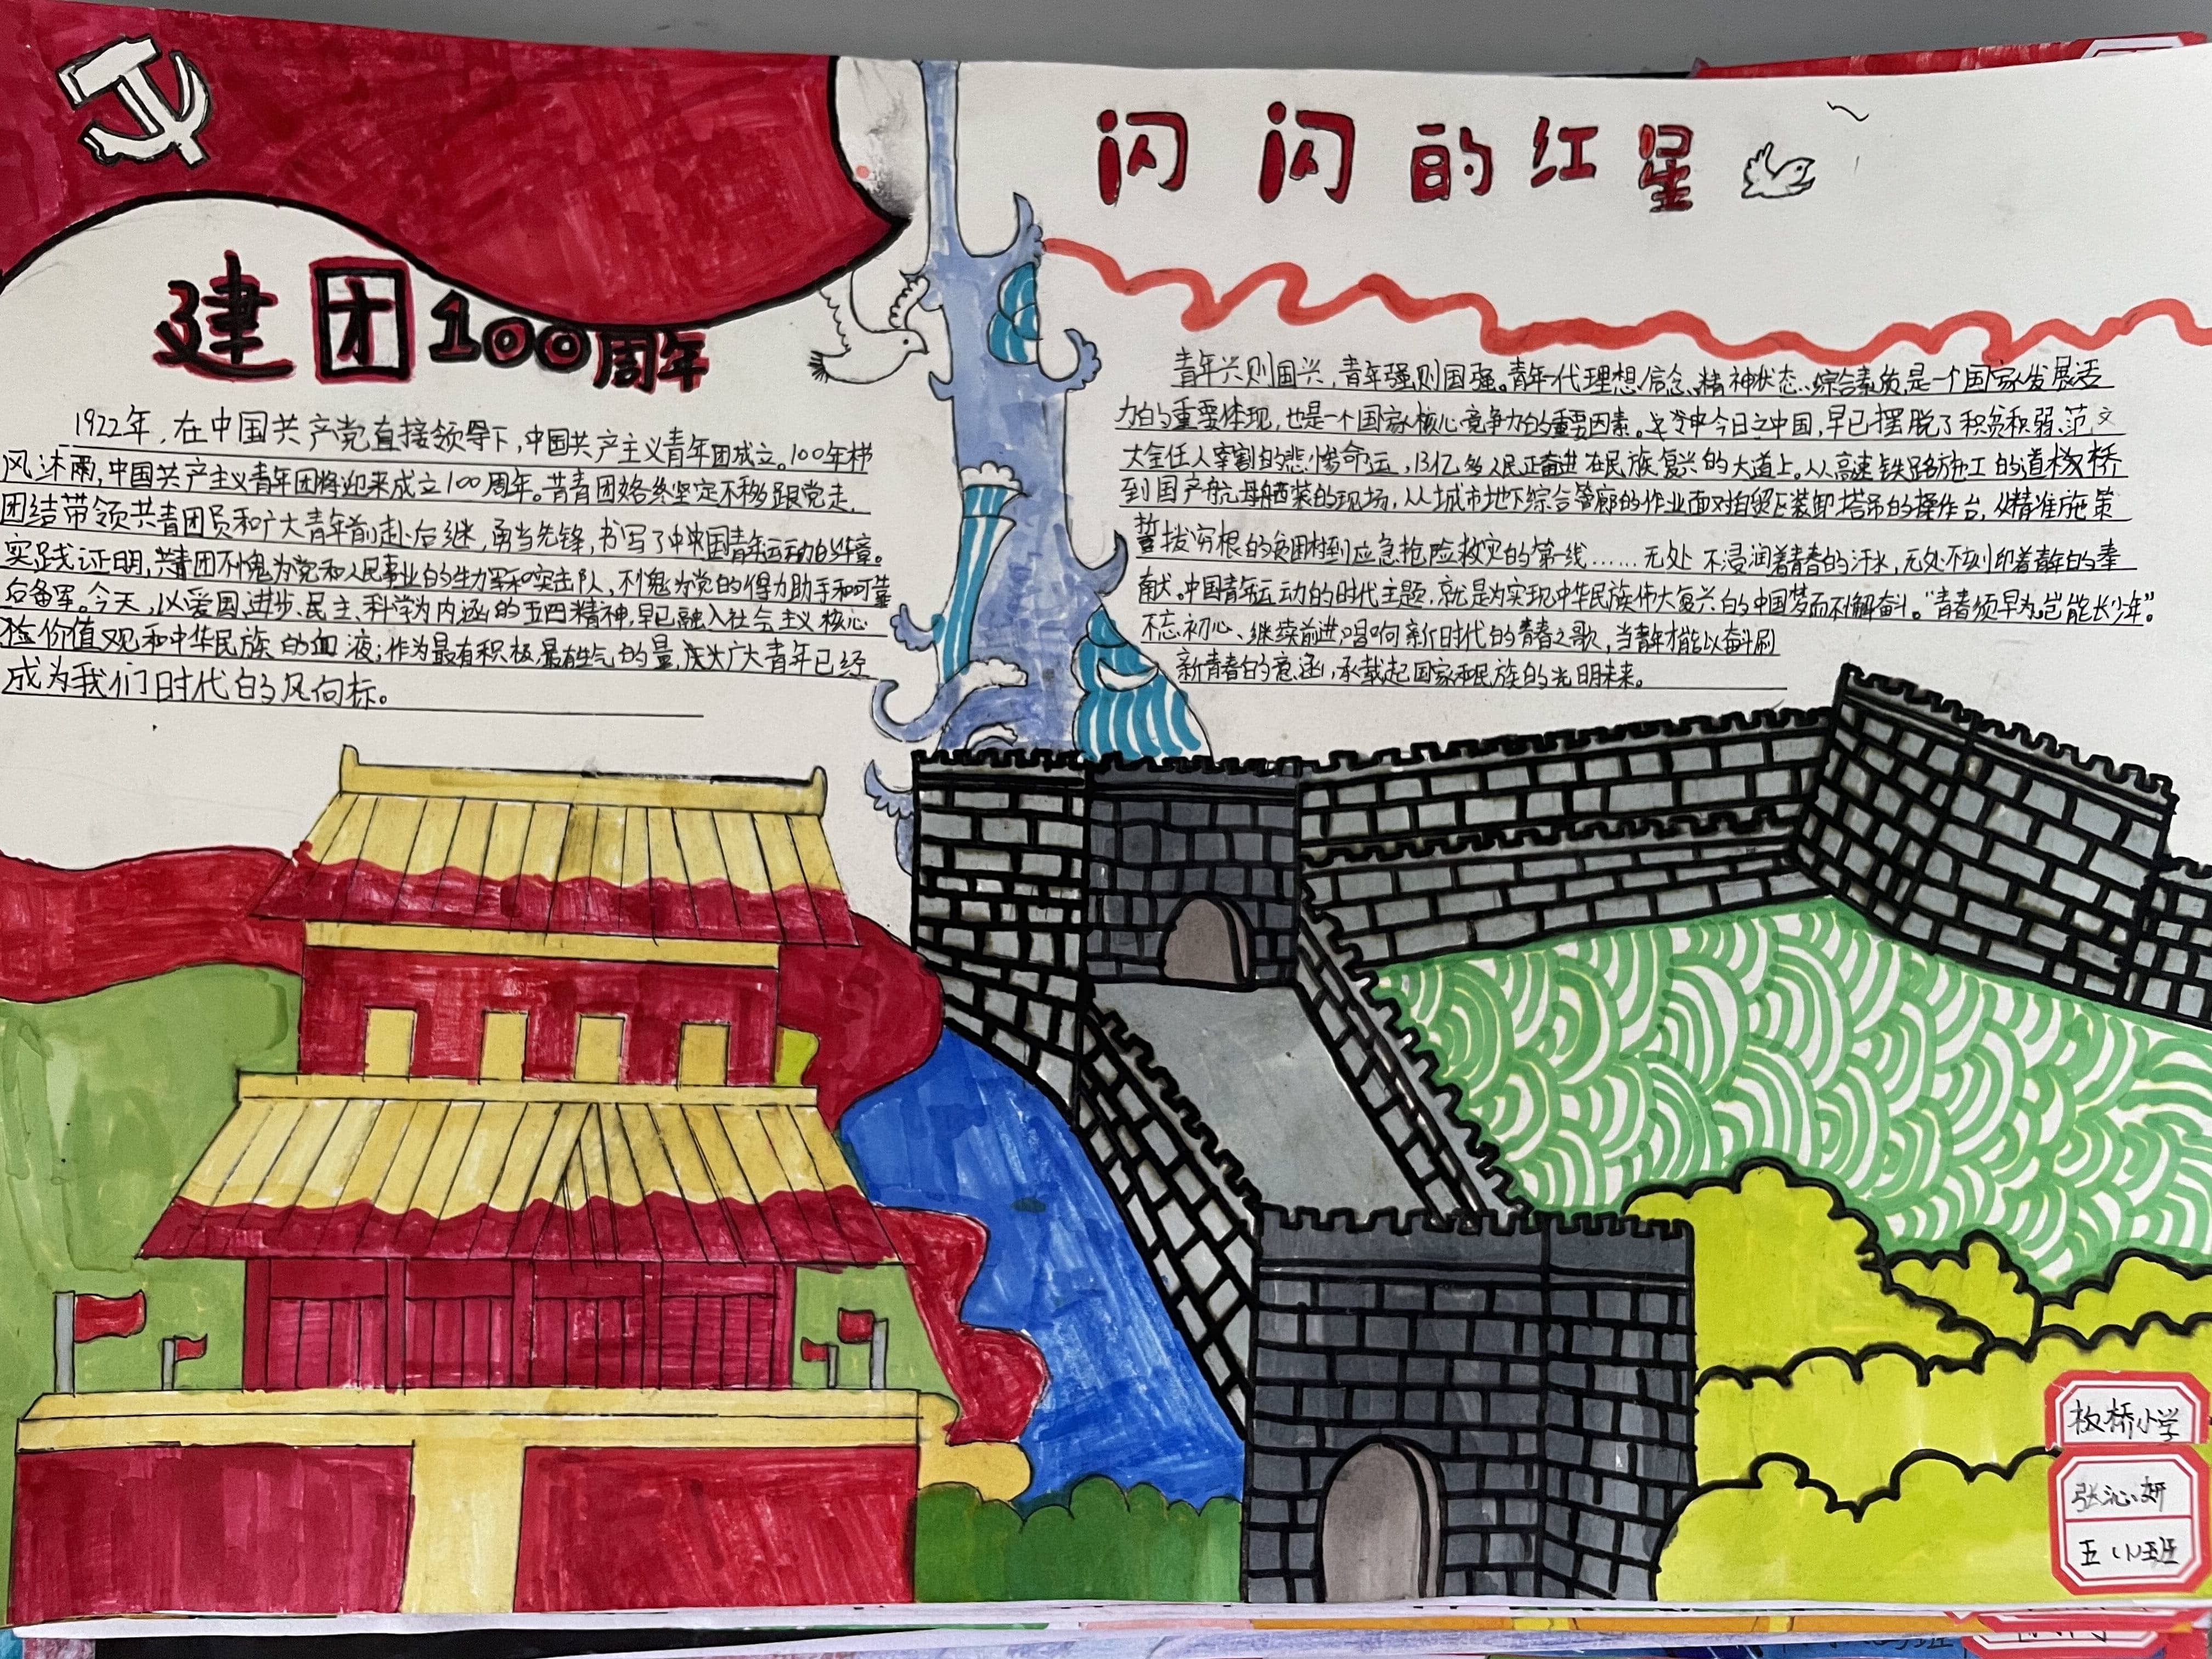 建团100周年
1922年,在中国共产党直接领导下,中国共产主义青年团成立。100年栉
风沐雨,中国共产主义青年团将迎来成立100周年。共青团始终坚定不移跟党走,
团结带领共青团员和广大青年前赴后继,勇当先锋,书写了中国青年运动的华章。
实践证明,共青团不愧为党和人民事业的生力军和突击队,不愧为党的得力助手和可靠
后备军。今天,以爱国、进步、民主、科学为内涵的五四精神,早已融入社会主义核心
价值观和中华民族的血液;作为最有积极,最有生气的量,广大青年已经
成为我们时代的风向标。
闪闪的红星
青年兴则国兴,青年强则国强。青年一代理想信念、精神状态、综合素质,是一个国家发展活
力的重要体现,也是一个国家核心竞争力的重要因素。今日之中国,早已摆脱了积贫积弱、
大全任人宰割的悲惨命运,13亿多人民正奋进在民族复兴的大道上。从高速铁路施工的道桥
到国产航母舾装的现场,从城市地下综合管廊的作业面对自贸区装卸塔吊的操作台,从精准施策
誓拔穷根的贫困村到应急抢险救灾的第一线……无处不浸润着青春的汗水,无处不刻印着青年的奉
献。中国青年运动的时代主题,就是为实现中华民族伟大复兴的中国梦而不懈奋斗。“青春须早为,岂能长少年”
不忘初心、继续前进,唱响新时代的青春之歌,当青年才能以奋斗刷
新青春的意涵,承载起国家和民族的光明未来。
板桥小学
张沁妍
五(1)班